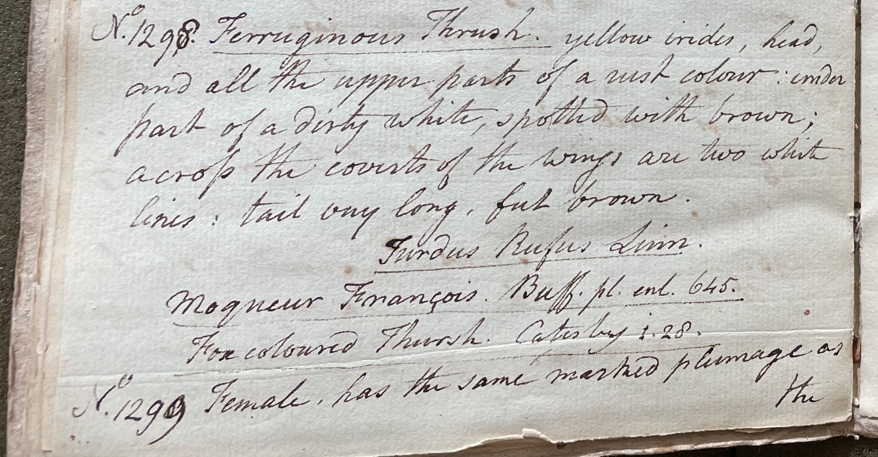 No. 1298. Ferruginous Thrush. yellow irides, head,
and all the upper parts of a rust colour: under
part of a dirty white, spotted with brown;
across the coverts of the wings are two white
lines: tail very long, feet brown.
Turdus Rufus Linn.
Moqueur François. Buff. pl. enl. 645.
Fox coloured Thursh. Catesby 1.28.
No. 1299 Female, has the same marked plumage as
the